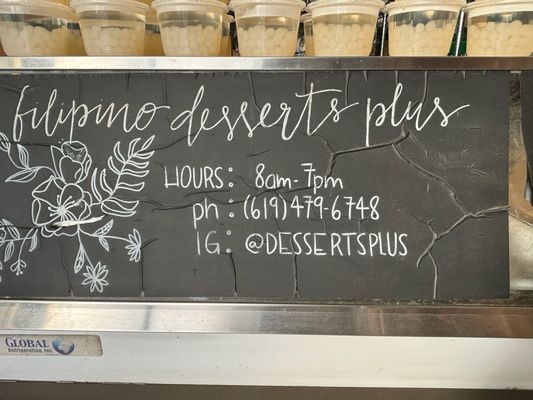 filipino desserts plus
HOURS: 8am-7pm
ph: (619)479-6748
IG: @DESSERTSPLUS
GLOBAL
Refrigeration, Inc.